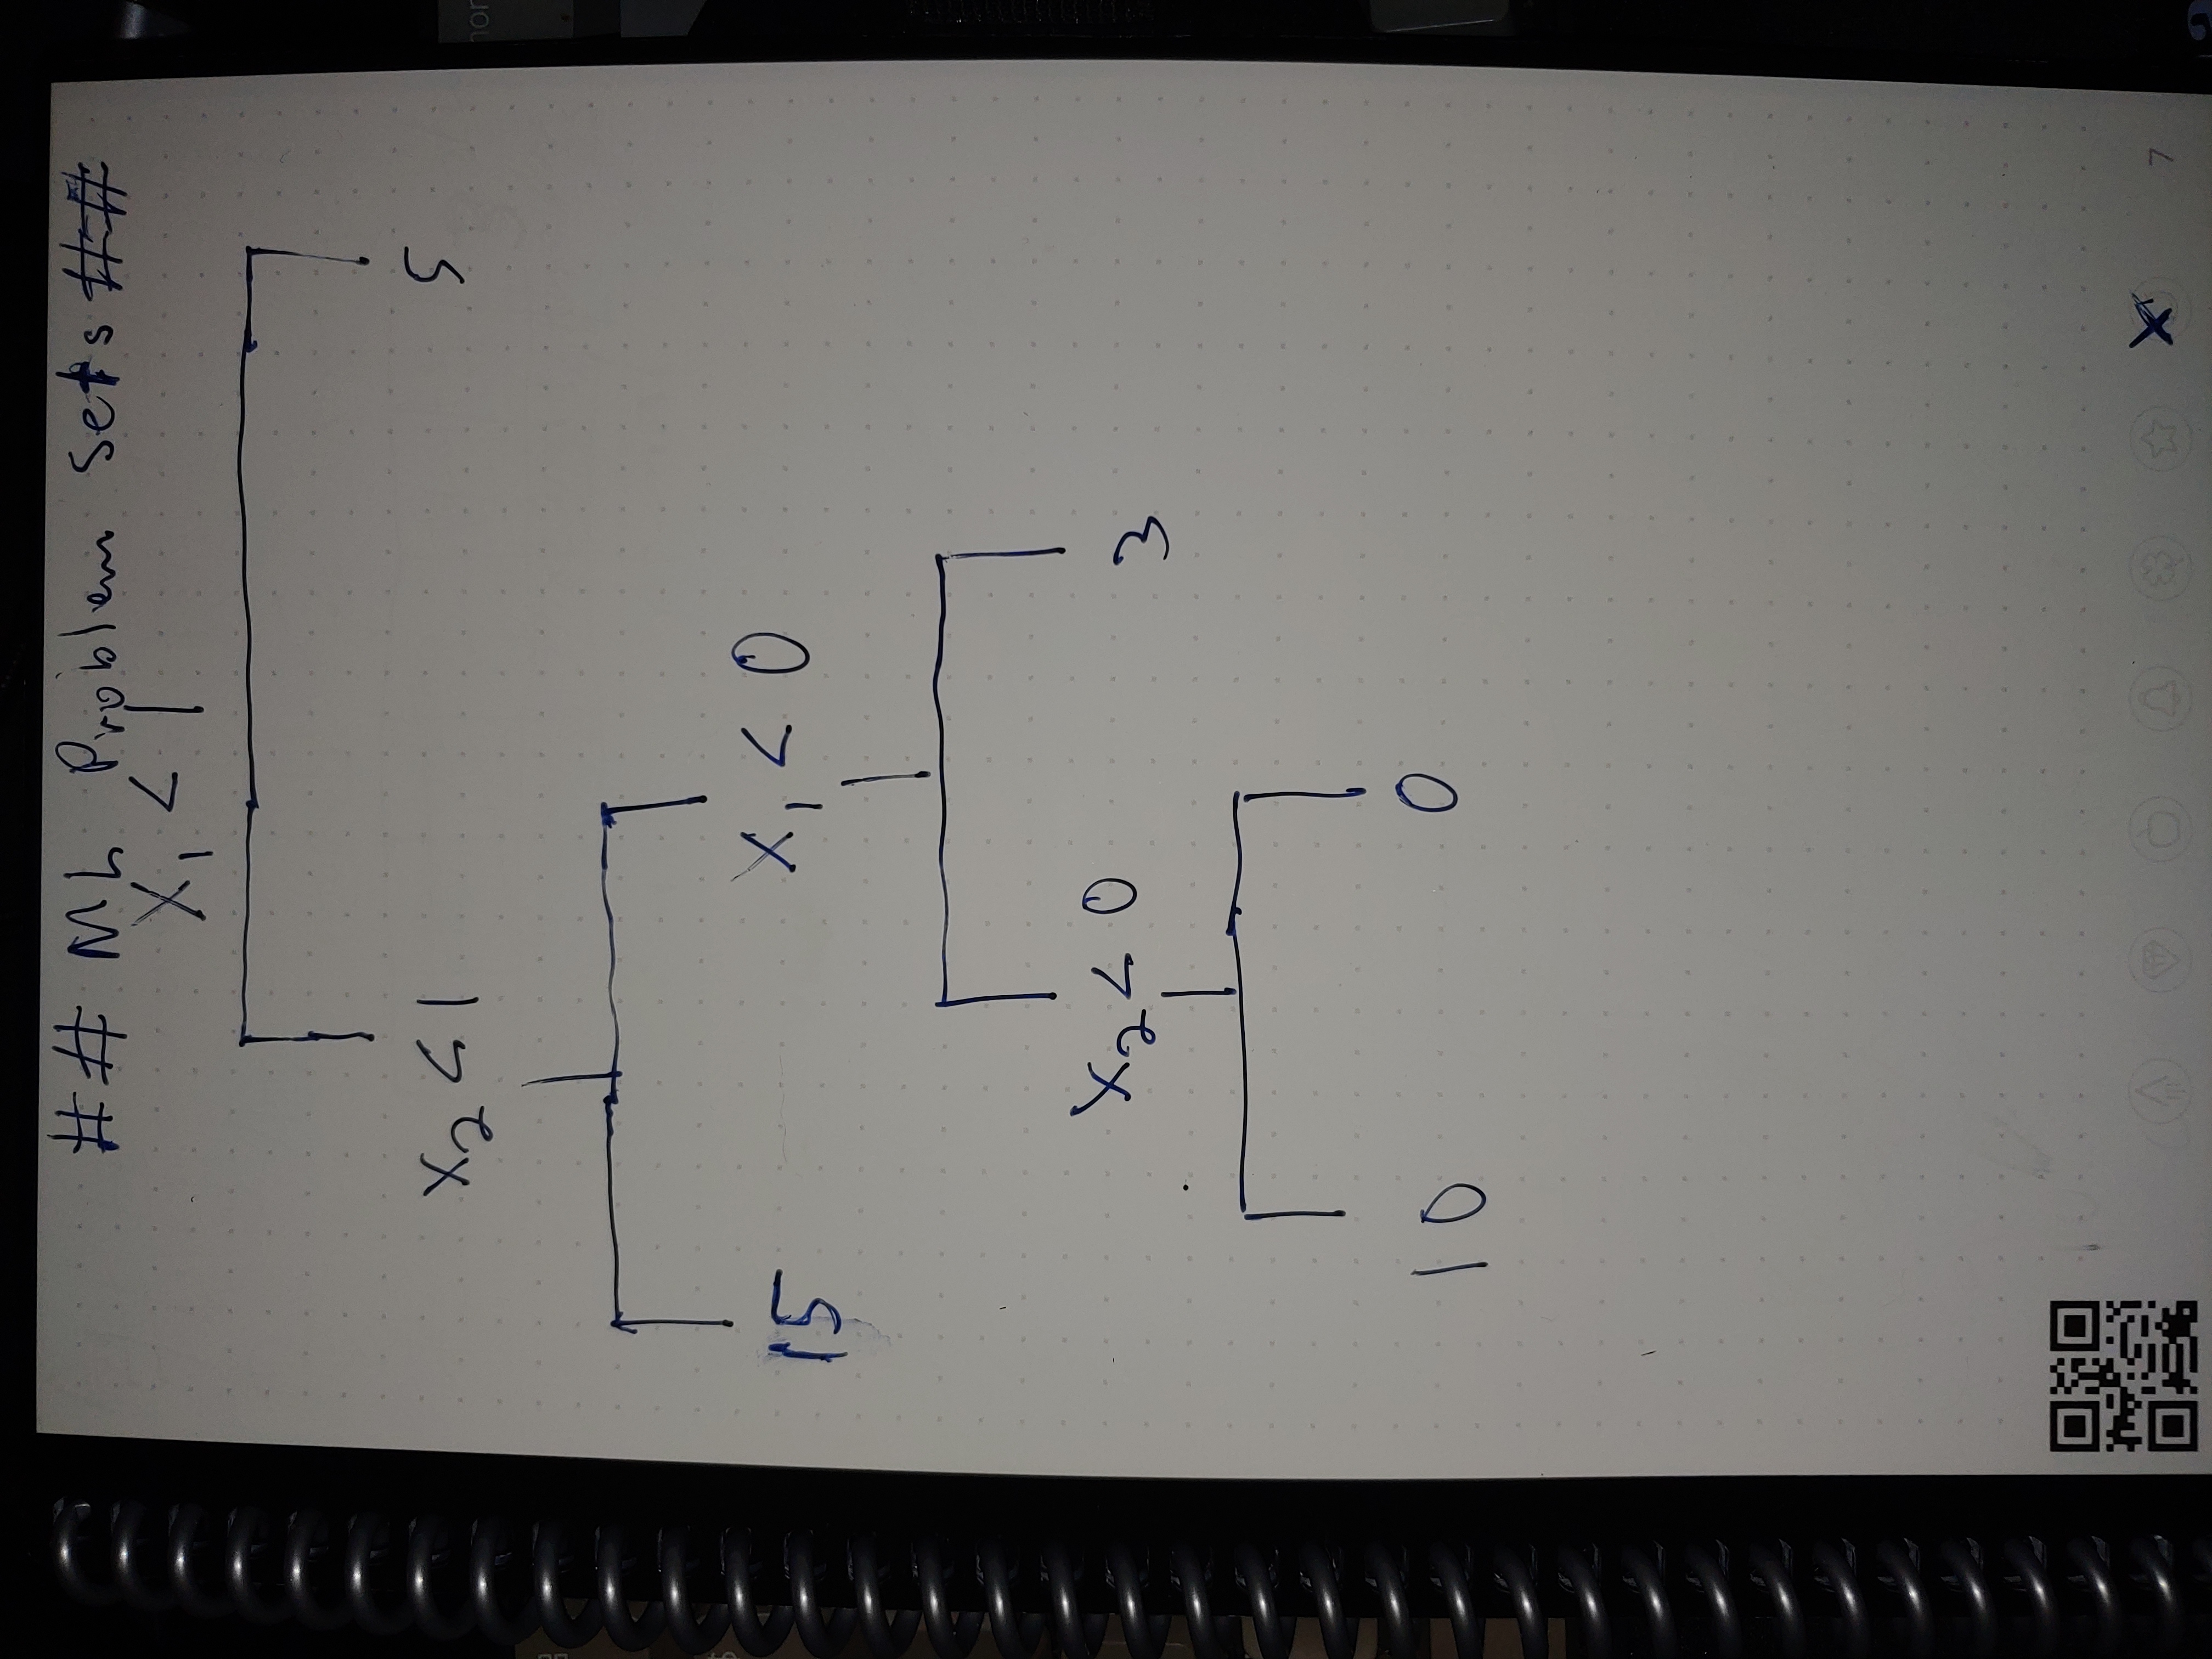 ## ML Problem Sets ##
X₁ < 1
X₂ < 1
5
15
X₁ < 0
X₂ < 0
3
10
0
7